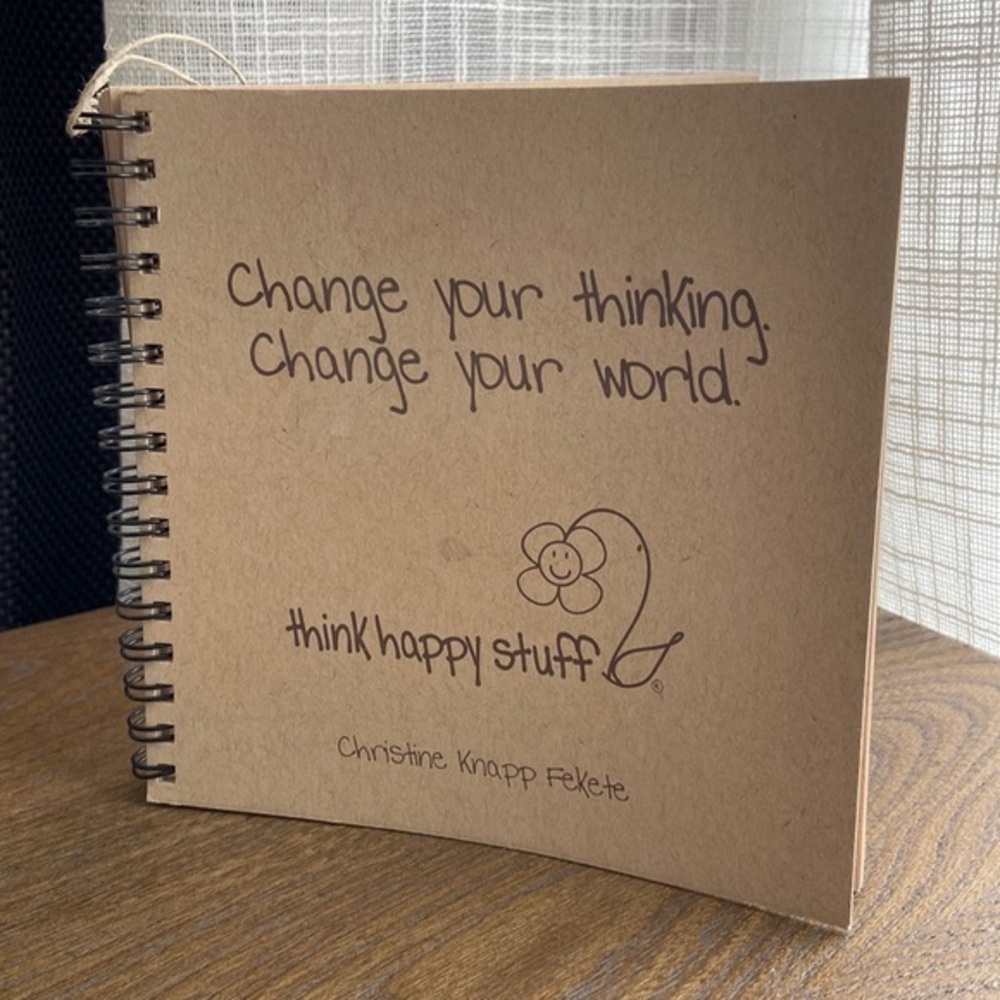 Change your thinking.
Change your world.
think happy stuff.
®
Christine Knapp Fekete